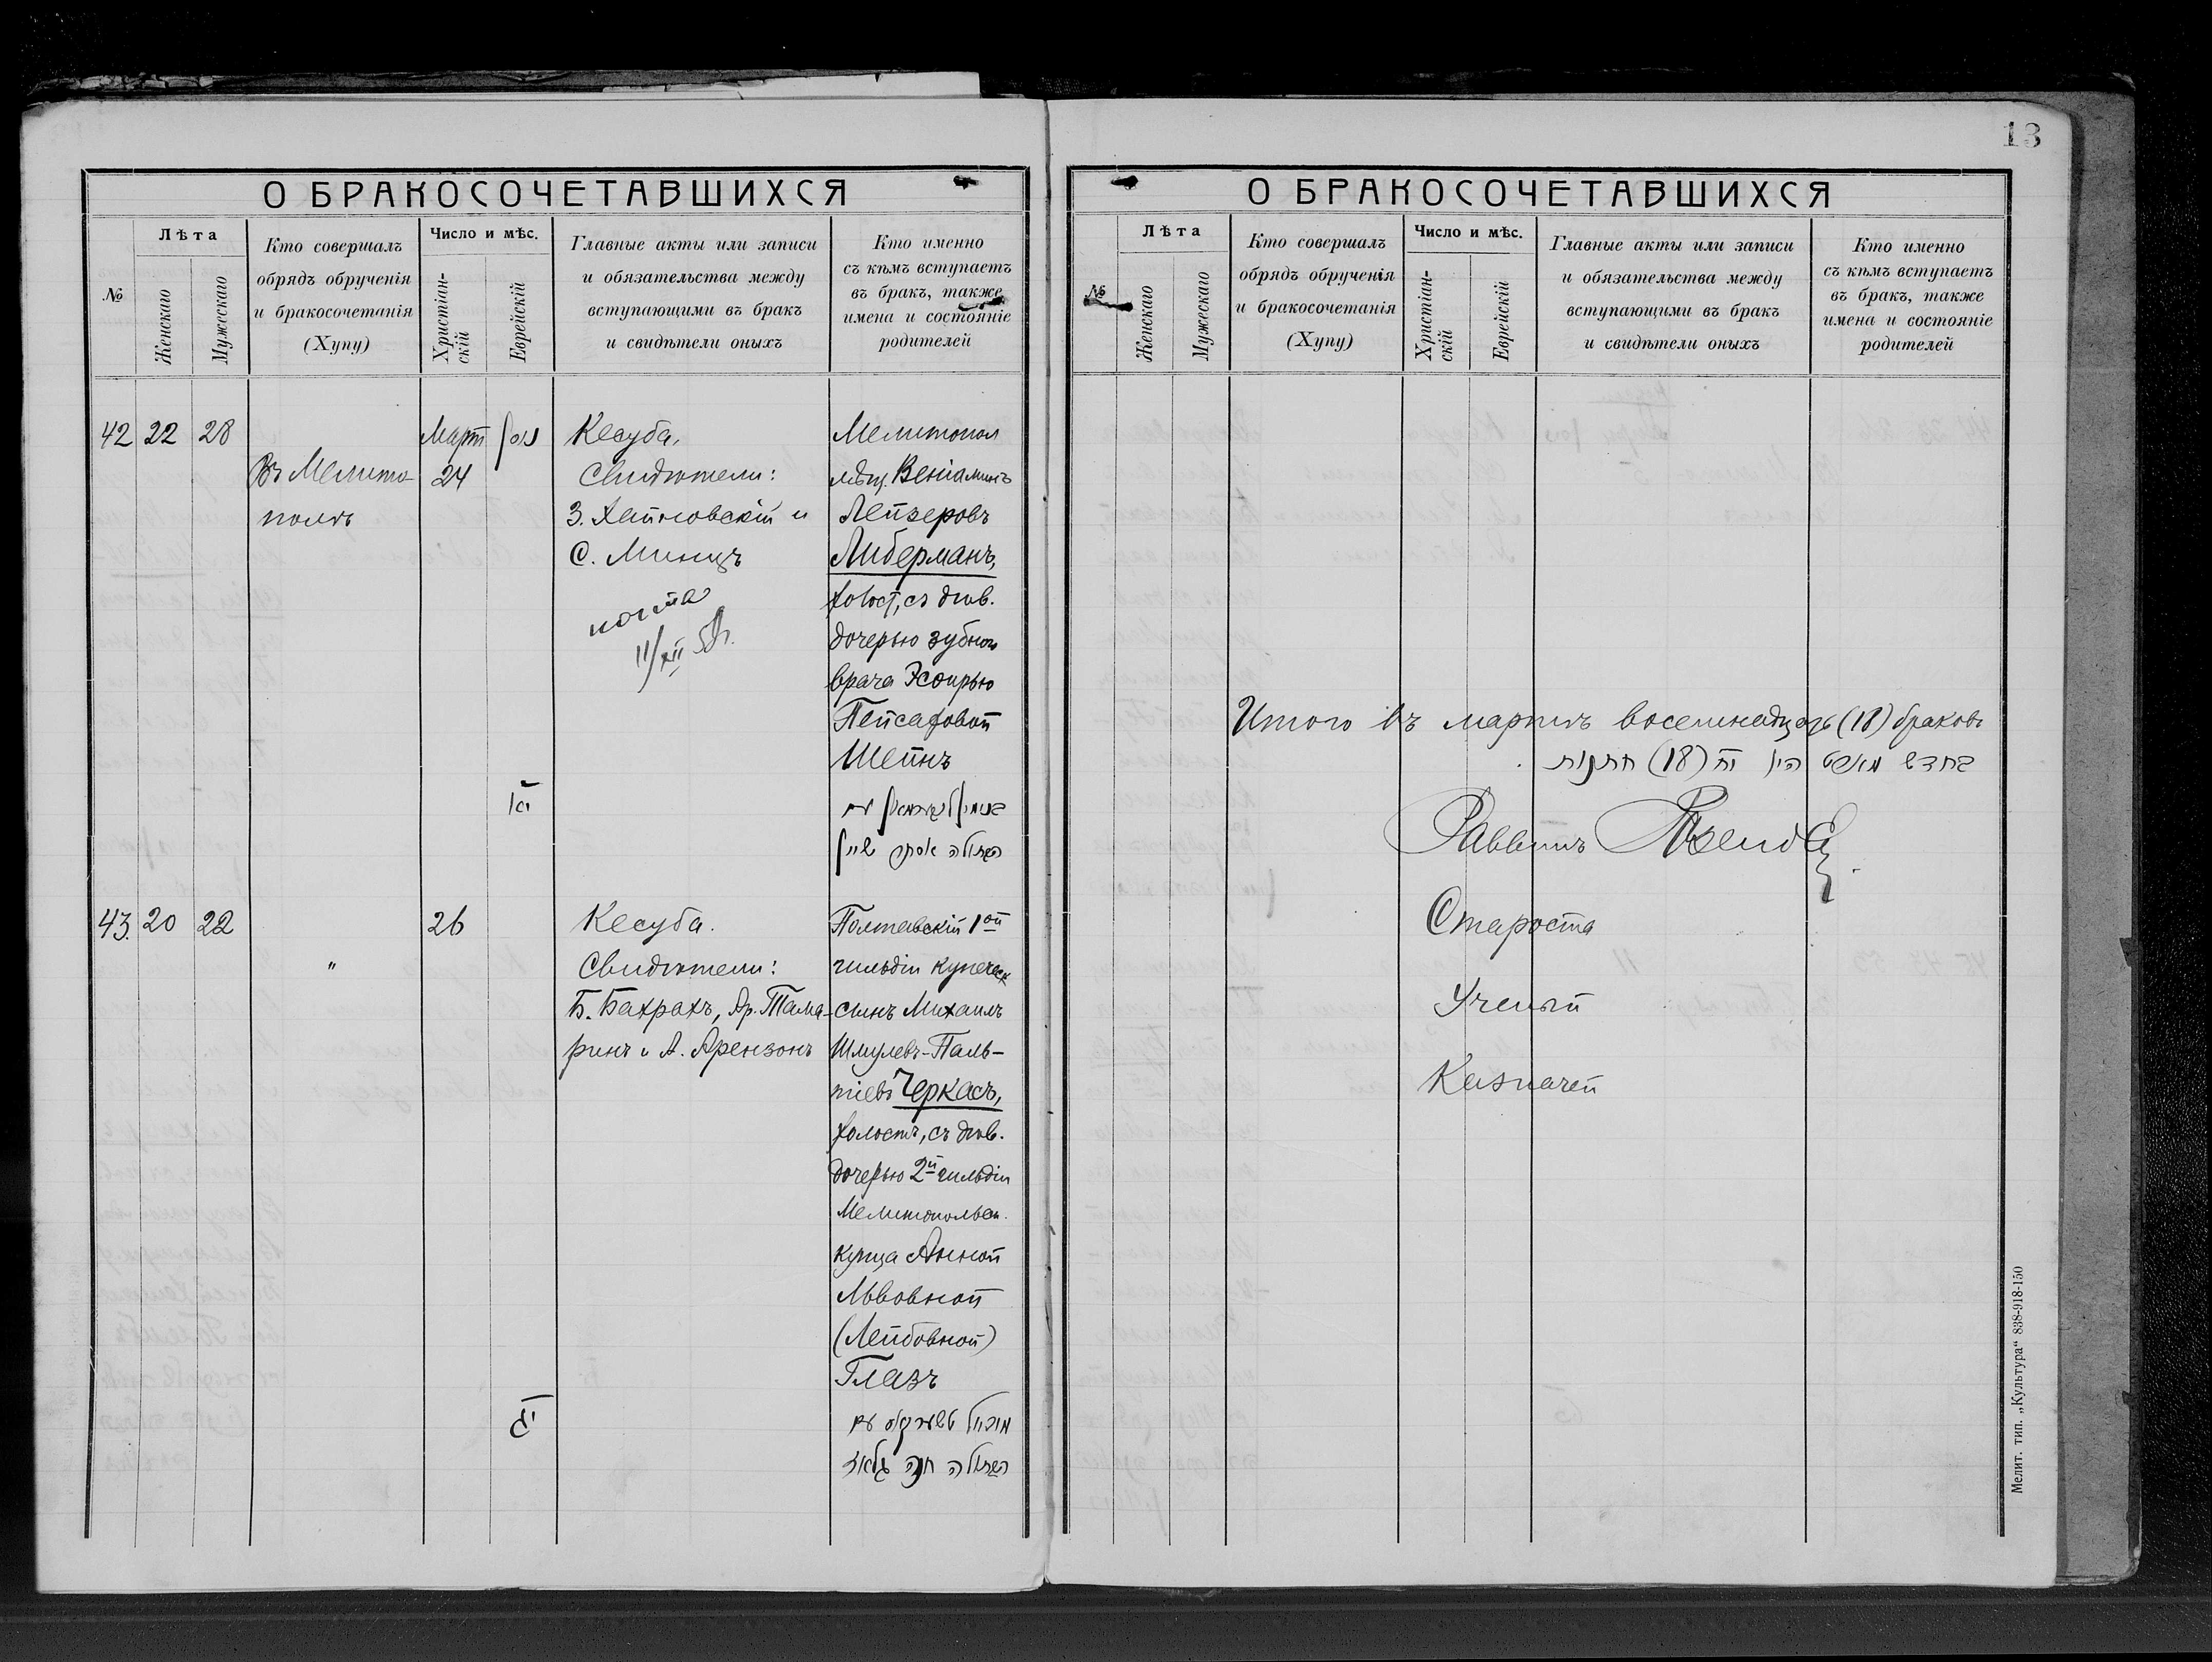 13
О БРАКОСОЧЕТАВШИХСЯ
№
Лѣта
Женскаго
Мужескаго
Кто совершалъ
обрядъ обрученія
и бракосочетанія
(Хупу)
Число и мѣс.
Христіан-
скій
Еврейскій
Главные акты или записи
и обязательства между
вступающими въ бракъ
и свидѣтели оныхъ
Кто именно
съ кѣмъ вступаетъ
въ бракъ, также
имена и состояніе
родителей
42 22 28
Въ Мелито-
полѣ
Март ניסן
24
יא
Кесуба.
Свидѣтели:
З. Хайловскій и
С. Минцъ
11/XII
Мелитопол
мѣщ. Веніаминъ
Лейзеровъ
Либерманъ,
холост, съ дѣв.
дочерью зубного
врача Эсѳирью
Пейсаховой
Шейнъ
בנימין ליבערמאן עם
הבתולה אסתר שיין
43. 20 22
"
26
יג
Кесуба.
Свидѣтели:
Б. Бахрахъ, Яр. Тама-
ринъ и А. Арензонъ
Полтавскій 1ой
гильдіи купеческ
сынъ Михаилъ
Шмулевъ-Паль-
тіевъ Черкасъ,
холостъ, съ дѣв.
дочерью 2й гильдіи
Мелитопольск.
купца Анной
Львовной
(Лейбовной)
Глазъ
מיכאל טשערקאס עם
הבתולה חנה גלאז
О БРАКОСОЧЕТАВШИХСЯ
№
Лѣта
Женскаго
Мужескаго
Кто совершалъ
обрядъ обрученія
и бракосочетанія
(Хупу)
Число и мѣс.
Христіан-
скій
Еврейскій
Главные акты или записи
и обязательства между
вступающими въ бракъ
и свидѣтели оныхъ
Кто именно
съ кѣмъ вступаетъ
въ бракъ, также
имена и состояніе
родителей
Итого въ мартѣ восемнадцать (18) браковъ
בחדש מארט היו יח (18) חתונות
Раввинъ
Староста
Ученый
Казначей
Мелит. тип. „Культура“ 838-918-150